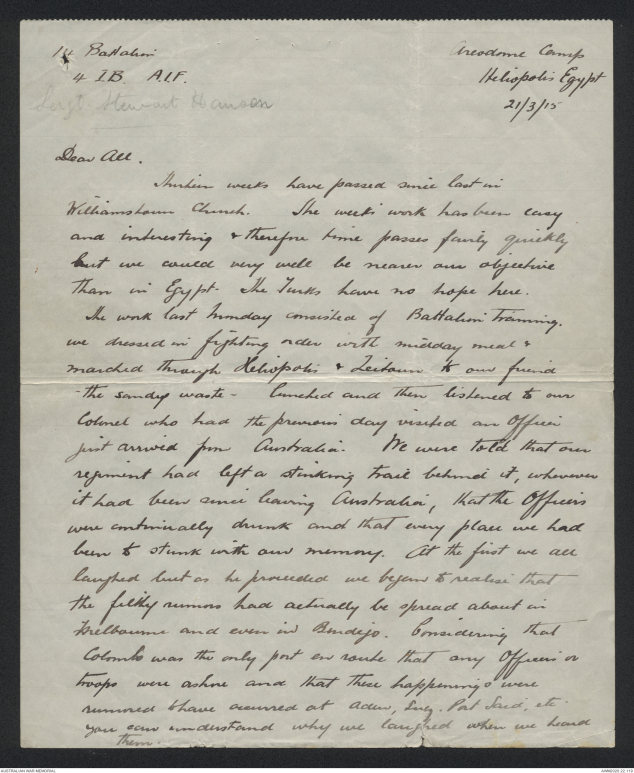 14 Battalion
4 I.B. A.I.F.
Sergt. Stewart Hanson
Areodome Camp
Heliopolis Egypt
21/3/15
Dear All.
Thirteen weeks have passed since last in
Williamstown Church. The week's work has been easy
and interesting & therefore time passes fairly quickly
but we could very well be nearer our objective
than in Egypt. The Turks have no hope here.
The work last Monday consisted of Battalion Training.
we dressed in fighting order with midday meal &
marched through Heliopolis & Zeitoun to our friend
- the sandy waste - lunched and then listened to our
Colonel who had the previous day visited an Officer
just arrived from Australia. We were told that our
regiment had left a stinking trail behind it, wherever
it had been since leaving Australia, that the Officers
were continually drunk and that every place we had
been to stunk with our memory. At the first we all
laughed but as he proceeded we began to realise that
the filthy rumors had actually be spread about in
Melbourne and even in Bendigo. Considering that
Colombo was the only port en route that any Officers or
troops were ashore and that these happenings were
rumored to have occurred at Aden, Suez, Port Said, etc
you can understand why we laughed when we heard
them.
AUSTRALIAN WAR MEMORIAL